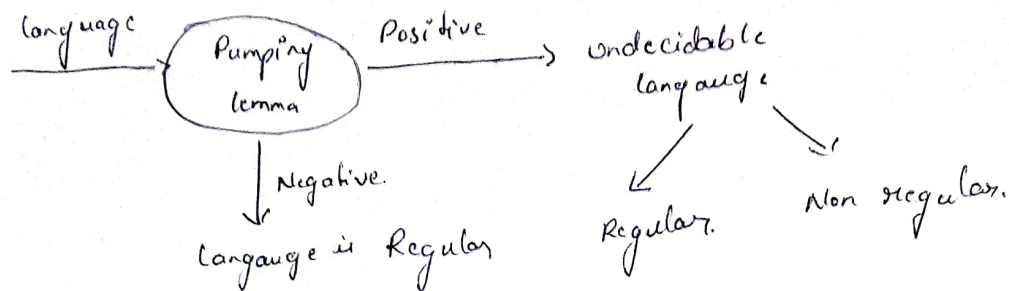 language
Pumping
lemma
Positive
undecidable
langauge
Negative.
Langauge is Regular
Regular.
Non regular.